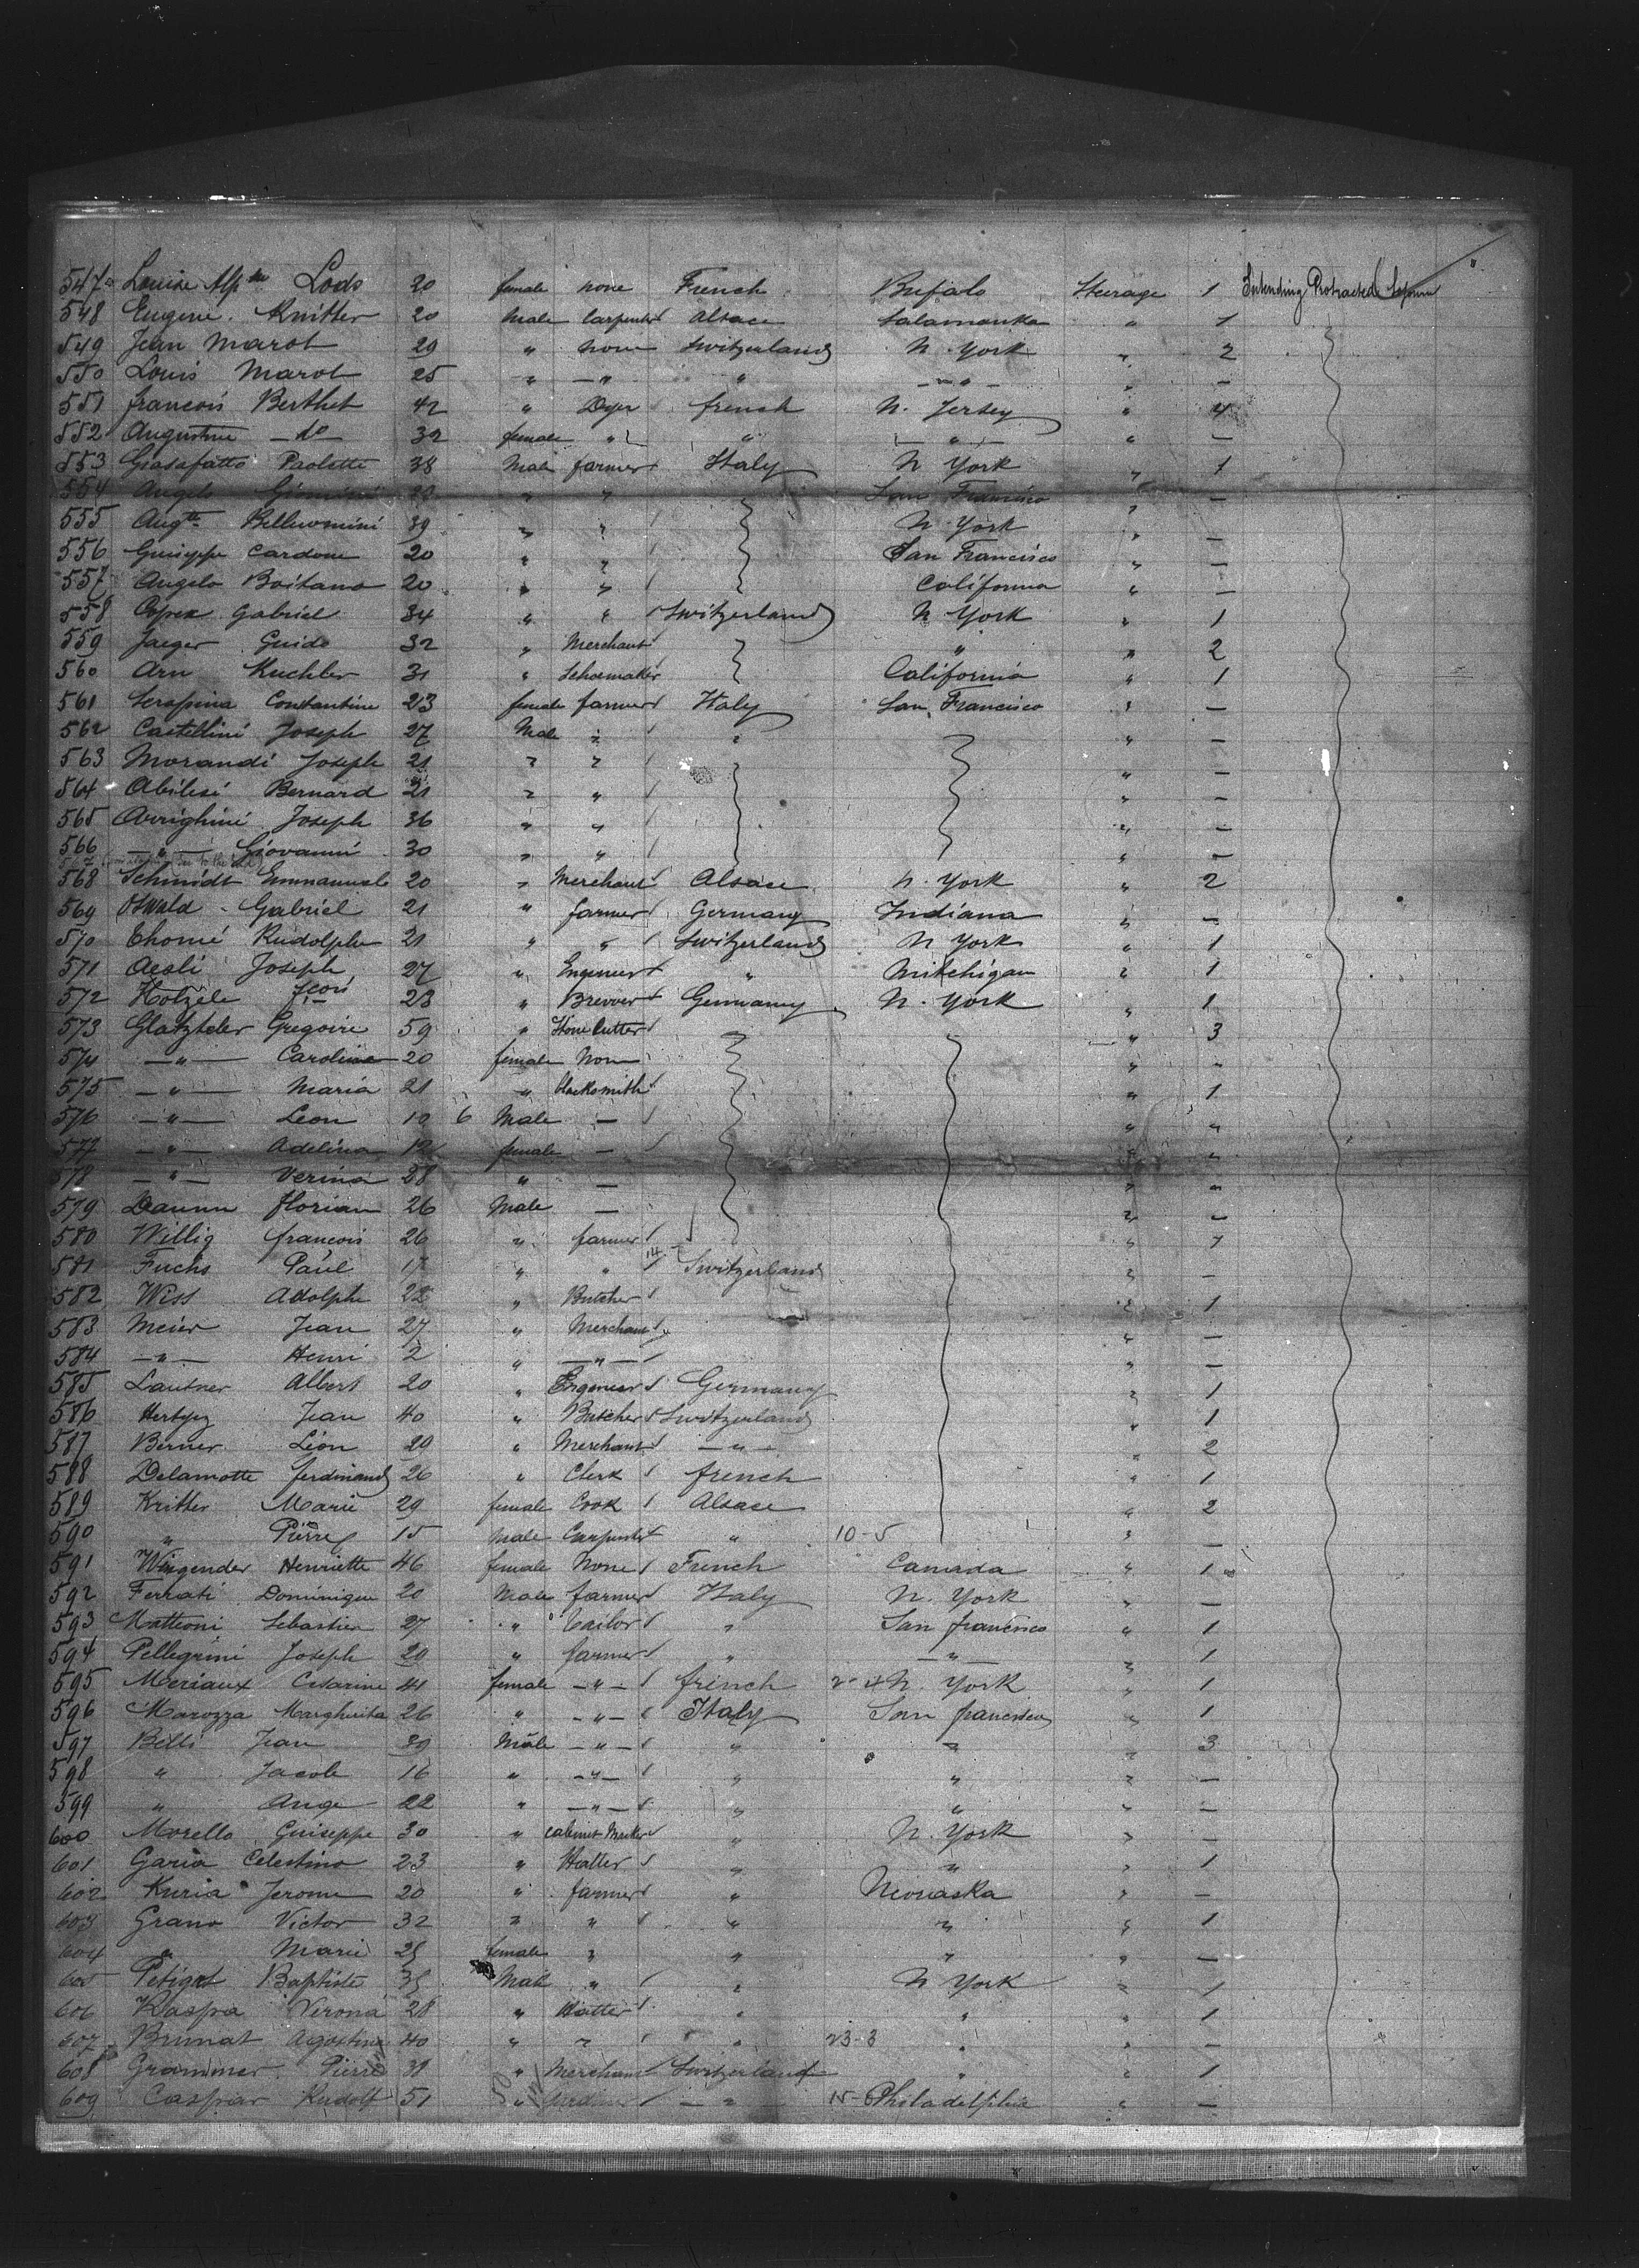 547 Louise Alp Lods 20 female none French Bufalo Steerage 1 Intending Protracted Sojourn
548 Eugene. Knitter 20 Male Carpenter Alsace Salamanka " 1
549 Jean Marot 29 " none Switzerland N. York " 2
550 Louis Marot 25 " — " — " — " — " —
551 francois Berthet 42 " Dyer french N. Jersey " 4
552 Augustine — do — 32 female " " — " — " —
553 Giosafatto Paolette 38 Male farmer Italy N York " 1
554 Angelo Giomini " " San Francisco " —
555 Augte Belluomini 39 " " N. York " —
556 Guiseppe Cardone 20 " " San Francisco " —
557 Angelo Boitano 20 " " California " —
558 Copex Gabriel 34 " " Switzerland N York " 1
559 Jaeger Guido 32 " Merchant " " 2
560 Arn Kuchler 31 " Schoemaker California " 1
561 Serapina Constantine 23 female farmer Italy San Francisco " —
562 Castellini Joseph 27 Male " " " —
563 Morandi Joseph 21 " " " —
564 Abilesi Bernard 21 " " " —
565 Arrighini Joseph 36 " " " —
566 — " — Giovanni 30 " " " —
567
568 Schmidt Emmanuel 20 " Merchant Alsace N. York " 2
569 Oswald - Gabriel 21 " farmer Germany Indiana " —
570 Thomé Rudolphe 21 " " Switzerland N York " 1
571 Aesli Joseph 27 " Engineer " Mitchigan " 1
572 Hotzele fcois 23 " Brevver Germany N. York " 1
573 Glatzteler Gregoire 59 " Stone Cutter " 3
574 — " — Caroline 20 female None " "
575 — " — Maria 21 " blacksmith " 1
576 — " — Leon 10 6 Male — " "
577 — " — Adelina 12 female — " "
578 — " — Verina 28 " — " "
579 Daumn florian 26 Male — " —
580 Willig francois 26 " farmer " 1
581 Fuchs Paul 17 " " 14 Switzerland " —
582 Wiss Adolphe 22 " Butcher " 1
583 Meier Jean 27 " Merchant " —
584 — " — Henri 2 " — " — " —
585 Lautner Albert 20 " Engineer Germany " 1
586 Hertzez Jean 40 " Butcher Switzerland " 1
587 Berner Léon 29 " Merchant — " — " 2
588 Delamotte ferdinand 26 " Clerk french " 1
589 Kritter Marie 29 female Cook Alsace " 2
590 " Pierre 15 Male Carpenter " 10-5 " —
591 Wingender Henriette 46 female None French Canada " 1
592 Ferrati Dominique 20 Male farmer Italy N. York " —
593 Matteoni Sebastien 27 " Tailor " San francisco " 1
594 Pellegrini Joseph 20 " farmer " — " — " 1
595 Meriaux Cesarine 41 female — " — french N. York " 1
596 Marozza Margherita 26 " — " — Italy San francisco " 1
597 Belli Jean 39 Male — " — " " " 3
598 " Jacob 16 " — " — " " " —
599 " Ange 22 " — " — " " " —
600 Morello Guiseppe 30 " cabinet Maker " N. York " —
601 Garia Celestino 23 " Hatter " " " 1
602 Kuria Jerome 20 " farmer " Nevraska " —
603 Grano Victor 32 " " " " " 1
604 " Marie 25 female " " " " —
605 Petigat Baptiste 35 Male " " N York " 1
606 Kaspra Verona 28 " Hatter " " " 1
607 Brunat Agostine 40 " " " 23-3 " " —
608 Grammer Pierre 31 " Merchant Switzerland " " 1
609 Caspar Rudolf 51 " — " 15- Philadelphia " —